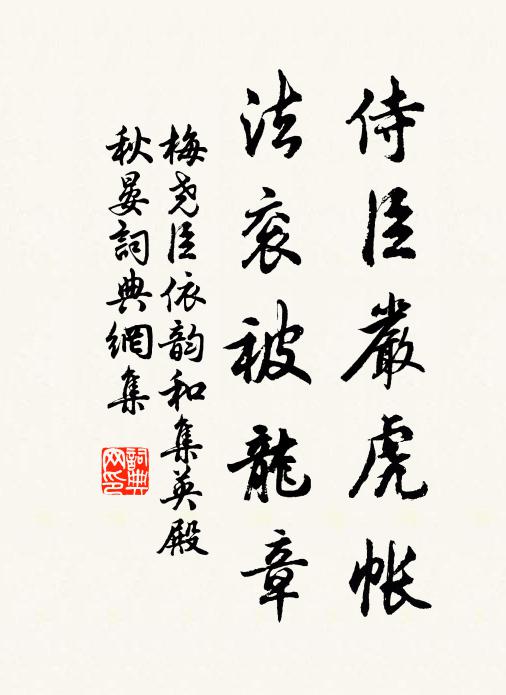 侍臣嚴虎帳
法衮被龍章
梅尧臣依韵和集英殿
秋晏詞典網集
詞典
网印